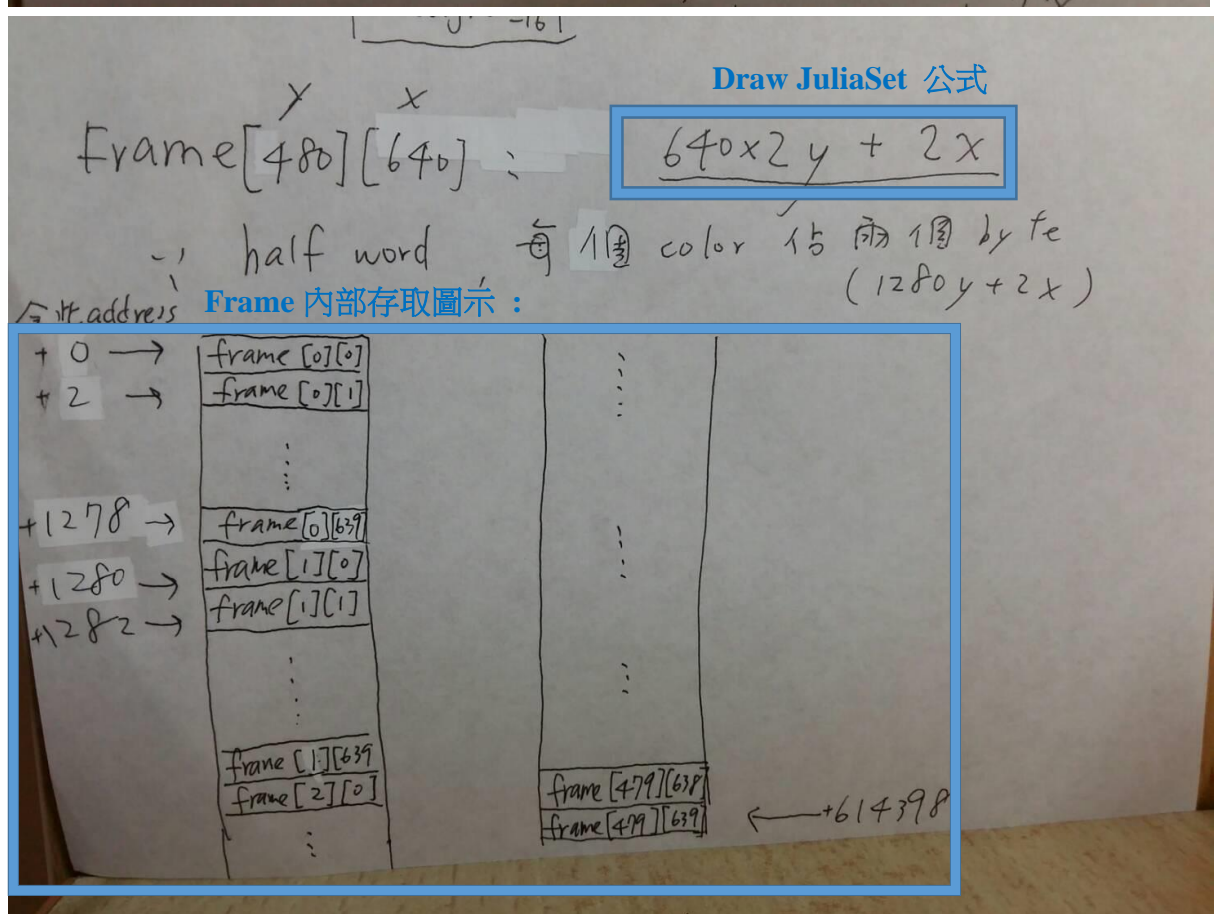 -16
Draw JuliaSet 公式
y x
Frame[480][640] : 640x2y + 2x
∵ half word , 每個 color 佔兩個 byte
(1280y+2x)
Frame 內部存取圖示 :
address
+ 0 → frame [0][0]
+ 2 → frame [0][1]
+1278 → frame[0][639]
+1280 → frame[1][0]
+1282 → frame[1][1]
frame [1][639
frame[2][0]
frame [479][638]
frame[479][639] ← +614398